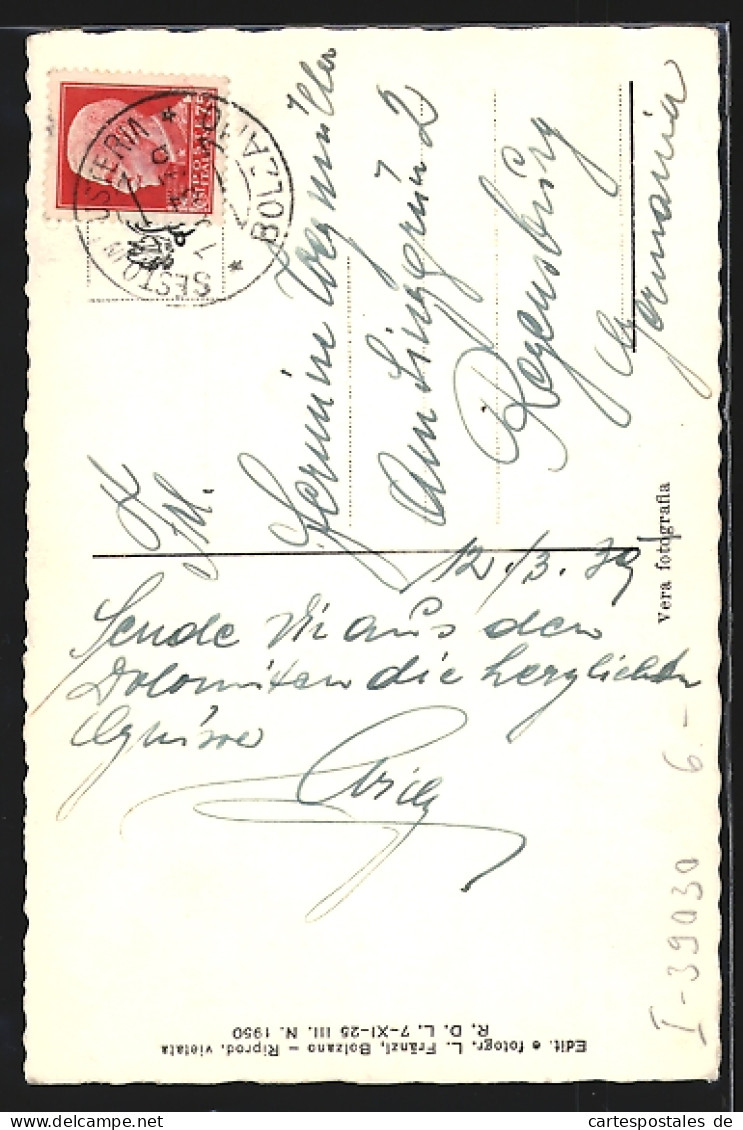 POSTE ITALIANE
SESTO IN PUSTERIA
BOLZANO
Frl.
Hermine Wegmüller
Am Singrün 2
Regensburg
Germania
12./3. 39
Sende Dir aus den
Dolomiten die herzlichsten
Grüsse
Vera fotografia
Edit. e fotogr. L. Fränzl, Bolzano – Riprod. vietata
R. D. L. 7-XI-25 III. N. 1950
6.-
I-39030
cartespostales de